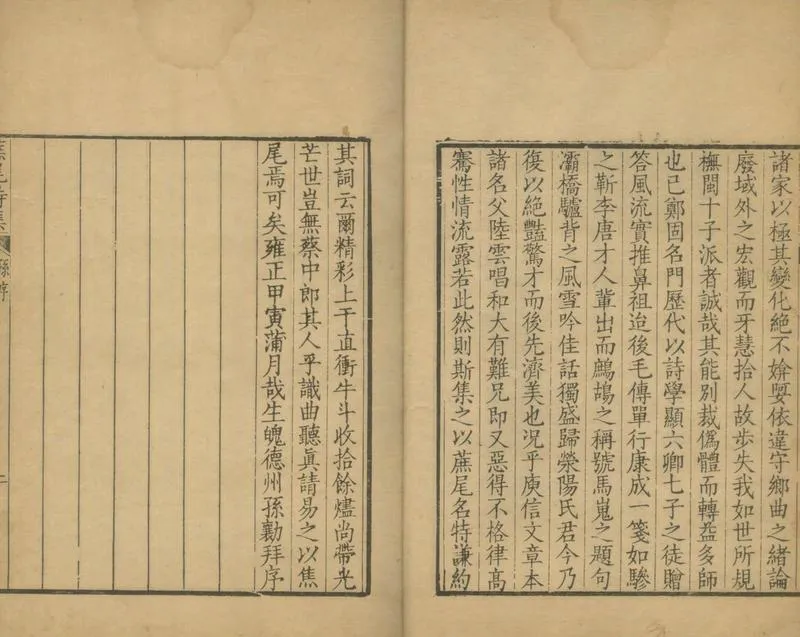 諸家以極其變化絶不媕婴依違守鄉曲之緒論
廢域外之宏觀而牙慧拾人故步失我如世所規
橅閩十子派者誠哉其能别裁僞體而轉益多師
也已鄭固名門歷代以詩學顯六卿七子之徒贈
答風流實推鼻祖迨後毛傳單行康成一箋如驂
之靳李唐才人輩出而鷓鴣之稱號馬嵬之題句
灞橋驢背之風雪吟佳話獨盛歸滎陽氏君今乃
復以絶豔驚才而後先濟美也况乎庾信文章本
諸名父陸雲唱和大有難兄即又惡得不格律高
騫性情流露若此然則斯集之以蕉尾名特謙約
其詞云爾精彩上干直衝牛斗收拾餘燼尚帶光
芒世豈無蔡中郎其人乎識曲聽眞請易之以焦
尾焉可矣雍正甲寅蒲月哉生魄德州孫勷拜序
尾詩集
孫序